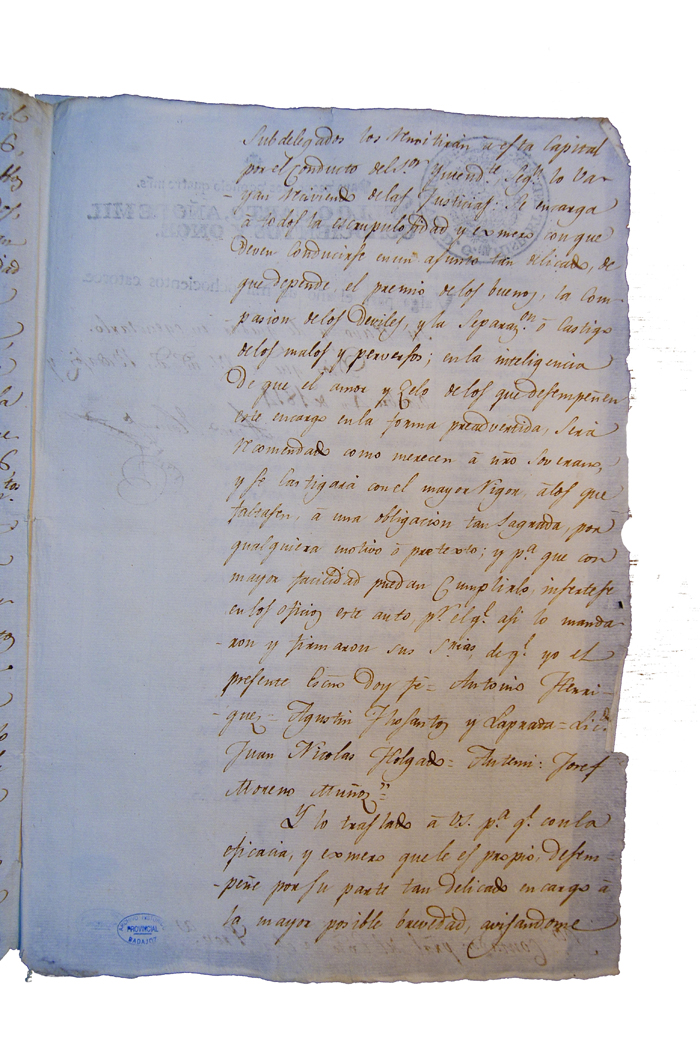 Subdelegados los remitirán à esta Capital
por el Conducto del S.or Yntend.te Seg.n lo va-
yan haviendo de las Justicias. Se encarga
à todos la escrupulosidad y exmero con que
deven conducirse en un asunto tan delicado, de
que depende, el premio de los buenos, la Com-
-pasion de los Deviles, y la Separaz.on ò Castigo
de los malos y perversos; en la inteligencia
De que el amor y Zelo de los que desempeñen
este encargo en la forma preadvertida, será
recomendado como merecen à nro Soverano,
y se castigará con el mayor rigor, àlos que
faltasen, à una obligacion tan Sagrada, por
qualquiera motivo ò pretexto; y p.a que con
mayor facilidad puedan Cumplirlo, insertese
en los oficios este auto, p.r el q.l asi lo manda
-ron y firmaron sus S.rias, de q.e yo el
presente Escno Doy fè = Antonio Henri-
-quez = Agustin Thosantos y Laprada = Lic.do
Juan Nicolas Holgado = Antemi: Josef
Moreno Muñoz =
Y lo traslado à VS. p.a q.e con la
eficacia, y exmero que le es propio, desem-
-peñe por su parte tan delicado encargo à
la mayor posible brevedad, avisandome
PROVINCIAL
BADAJOZ